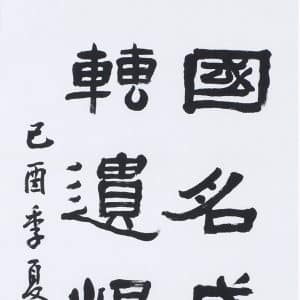 國名成
轉遺恨
己酉季夏